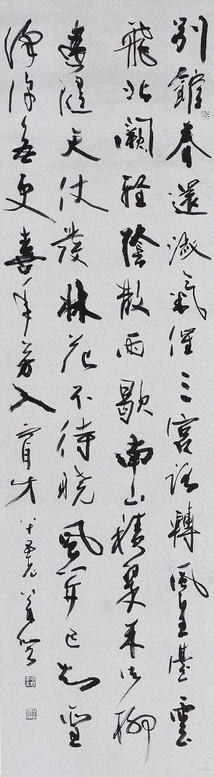 別館春還淑氣催三宮路轉鳳皇臺雲
飛北闕輕陰散雨歇南山積翠來御柳
遙隨天仗發林花不待曉風開已知聖
澤深無更喜年芳入睿才